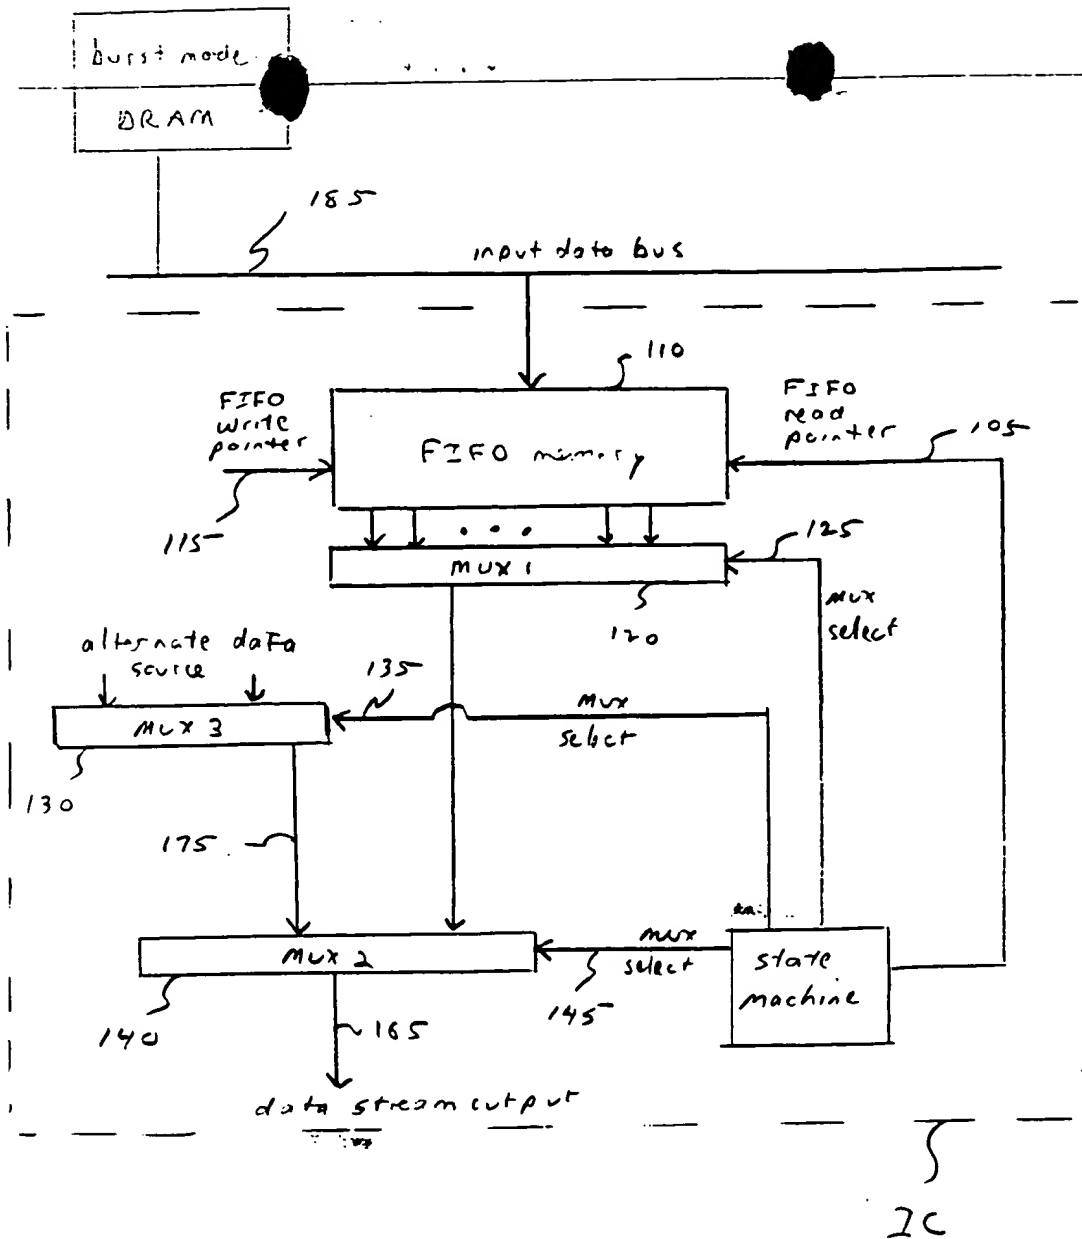 burst mode
DRAM
185
input data bus
110
FIFO
write
pointer
FIFO memory
FIFO
read
pointer
105
115
MUX 1
125
120
mux
select
alternate data
source
135
mux
select
MUX 3
130
175
MUX 2
mux
select
state
machine
140
165
145
data stream output
IC